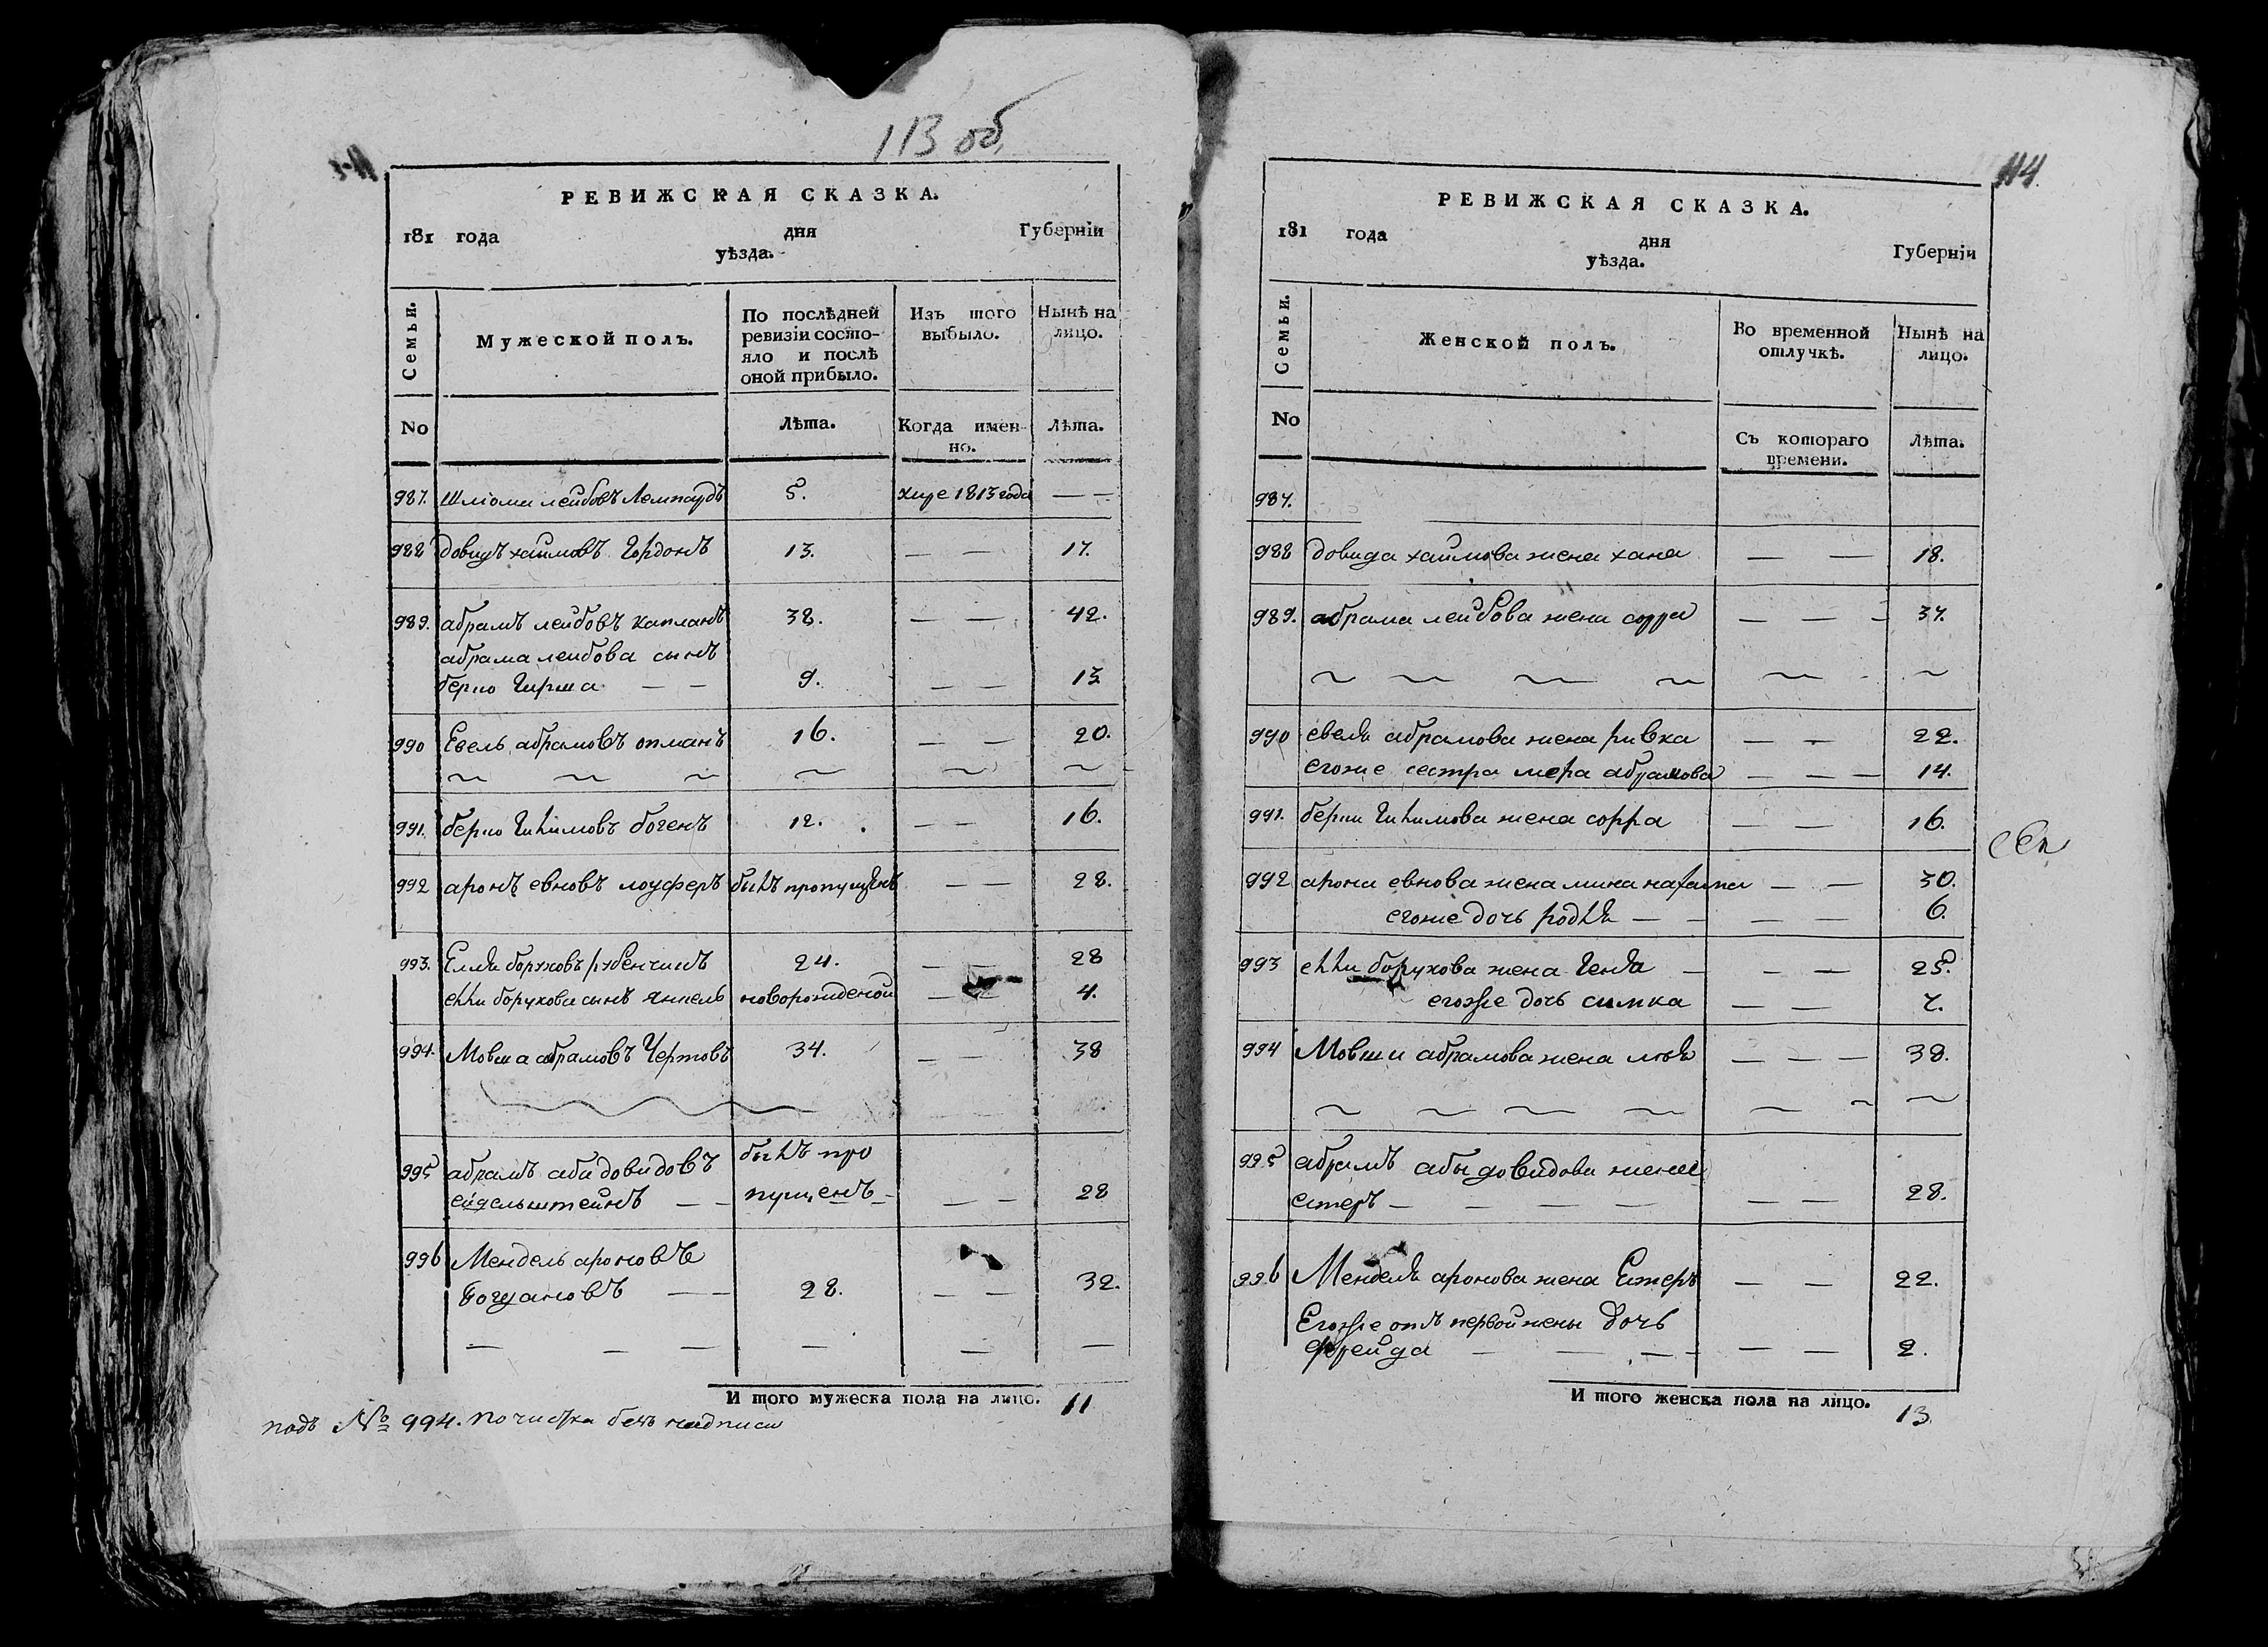 113 об.
РЕВИЖСКАЯ СКАЗКА.
181 года дня Губернїи
уѣзда.
Семьи. Мужеской полъ. По послѣдней ревизїи состояло и послѣ оной прибыло. Изъ того выбыло. Нынѣ на лицо.
No Лѣта. Когда именно. Лѣта.
987. Шлiома лейбовъ 5. 1813 года — —
988 довидъ хаимовъ Гордонъ 13. — — 17.
989. абрамъ лейбовъ капланъ 38. — — 42.
абрама лейбова сынъ
берко Гирша — — 9. — — 13
990 Евель абрамовъ опманъ 16. — — 20.
991. берко боренъ 12. — — 16.
992 аронъ евновъ былъ пропущенъ — — 28.
993. Елля боруховъ рубенчикъ 24. — — 28
елли борухова сынъ янкель новорожденой — — 4.
994. Мовша абрамовъ Чертовъ 34. — — 38
995 абрамъ аба довидовъ былъ про
ейдельштейнъ — — пущенъ — — 28
996 Мендель ароновъ
Богдановъ — — 28. — — 32.
— — — — — —
И того мужеска пола на лицо. 11
подъ № 994. почистка безъ надписи
114.
РЕВИЖСКАЯ СКАЗКА.
181 года дня Губернїи
уѣзда.
Семьи. Женской полъ. Во временной отлучкѣ. Нынѣ на лицо.
No Съ котораго времени. Лѣта.
987.
988 довида хаимова жена хана — — 18.
989. абрама лейбова жена сорра — — — 37.
990 евеля абрамова жена ривка — — 22.
егоже сестра мера абрамова — — — 14.
991. берки жена сорра — — 16.
992 арона евнова жена — — 30.
егоже дочь родля — — — — 6.
993 елли борухова жена Геня — — — 25.
егоже дочь симка — — 7.
994 Мовши абрамова жена — — — 38.
995 абрамъ абы довидова жена
естеръ — — — — — — 28.
996 Менделя аронова жена Естеръ — — 22.
Егоже отъ первой жены дочь
фрейда — — — — — 2.
И того женска пола на лицо. 13.